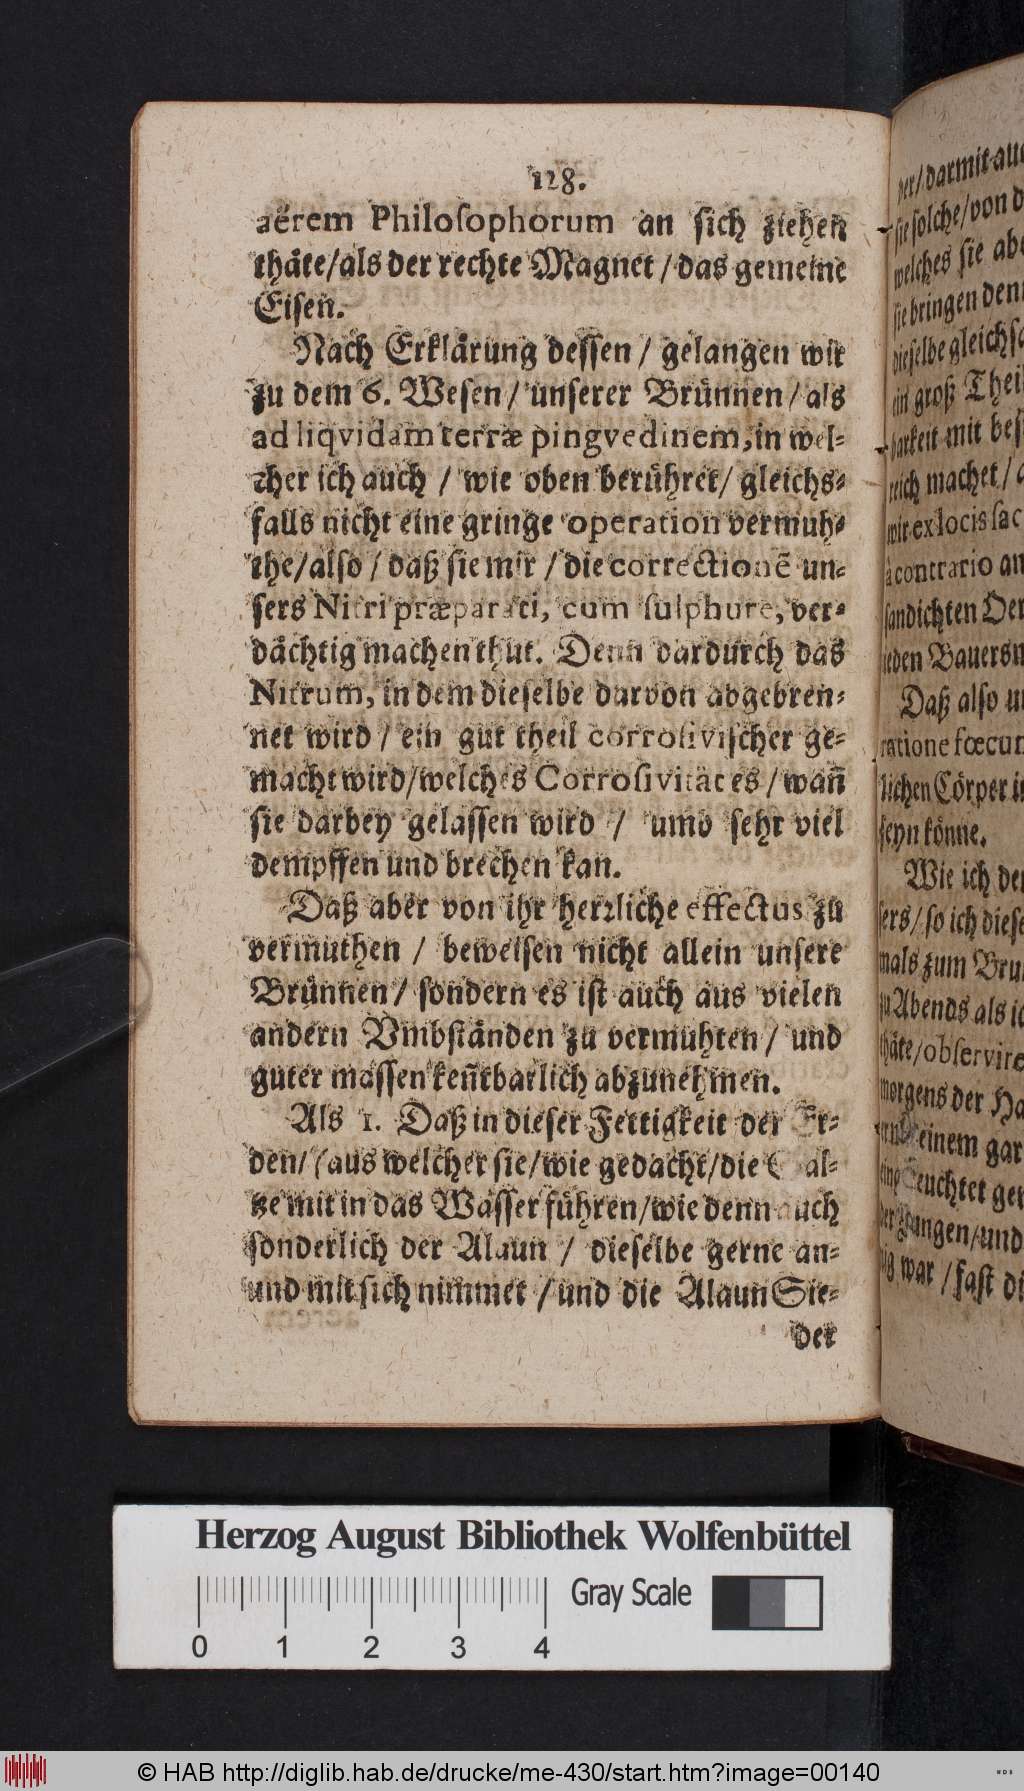 128.
aërem Philosophorum an sich ziehen
thäte/als der rechte Magnet / das gemeine
Eisen.
Nach Erklärung dessen / gelangen wir
zu dem 6. Wesen / unserer Brünnen / als
ad liqvidam terræ pingvedinem, in wel-
cher ich auch / wie oben berühret / gleichs-
falls nicht eine gringe operation vermuh-
the/also / daß sie mir / die correctionē un-
sers Nitri præparati, cum sulphure, ver-
dächtig machen thut. Denn dardurch das
Nitrum, in dem dieselbe darvon abgebren-
net wird / ein gut theil corrosivischer ge-
macht wird/welches Corrosivität es / wañ
sie darbey gelassen wird / umb sehr viel
dempffen und brechen kan.
Daß aber von ihr herzliche effectus zu
vermuthen / beweisen nicht allein unsere
Brünnen / sondern es ist auch aus vielen
andern Vmbständen zu vermuhten / und
guter massen keñtbarlich abzunehmen.
Als 1. Daß in dieser Fettigkeit der Er-
den/ (aus welcher sie/wie gedacht/die Sal-
tze mit in das Wasser führen/wie denn auch
sonderlich der Alaun / dieselbe gerne an-
und mit sich nimmet / und die Alaun Sie-
der
der/darmit
sie solche/von
welches sie
sie bringen
dieselbe
ein groß
mit
reich machet/
wir ex locis
à contrario
sandichten
Daß also
ratione
lichen Cörper
seyn könne.
Wie ich
sers/ so ich
mals zum
zu Abends als
thäte/
morgens der
einem
und
war / fast
Herzog August Bibliothek Wolfenbüttel
Gray Scale
0 1 2 3 4
© HAB http://diglib.hab.de/drucke/me-430/start.htm?image=00140